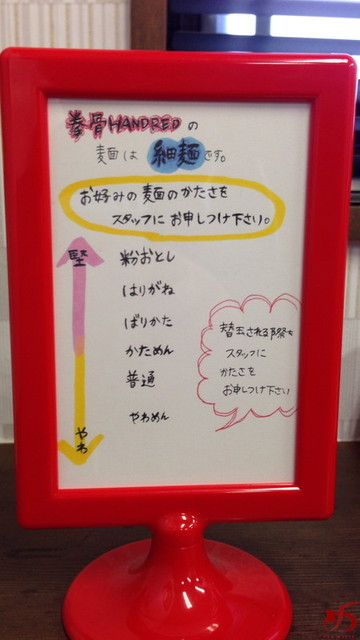 拳骨HANDREDの
麺は 細麺です。
お好みの麺のかたさを
スタッフにお申しつけ下さい。
堅
粉おとし
はりがね
ばりかた
かためん
普通
やわめん
やわ
替玉される際も
スタッフに
かたさを
お申しつけ下さい